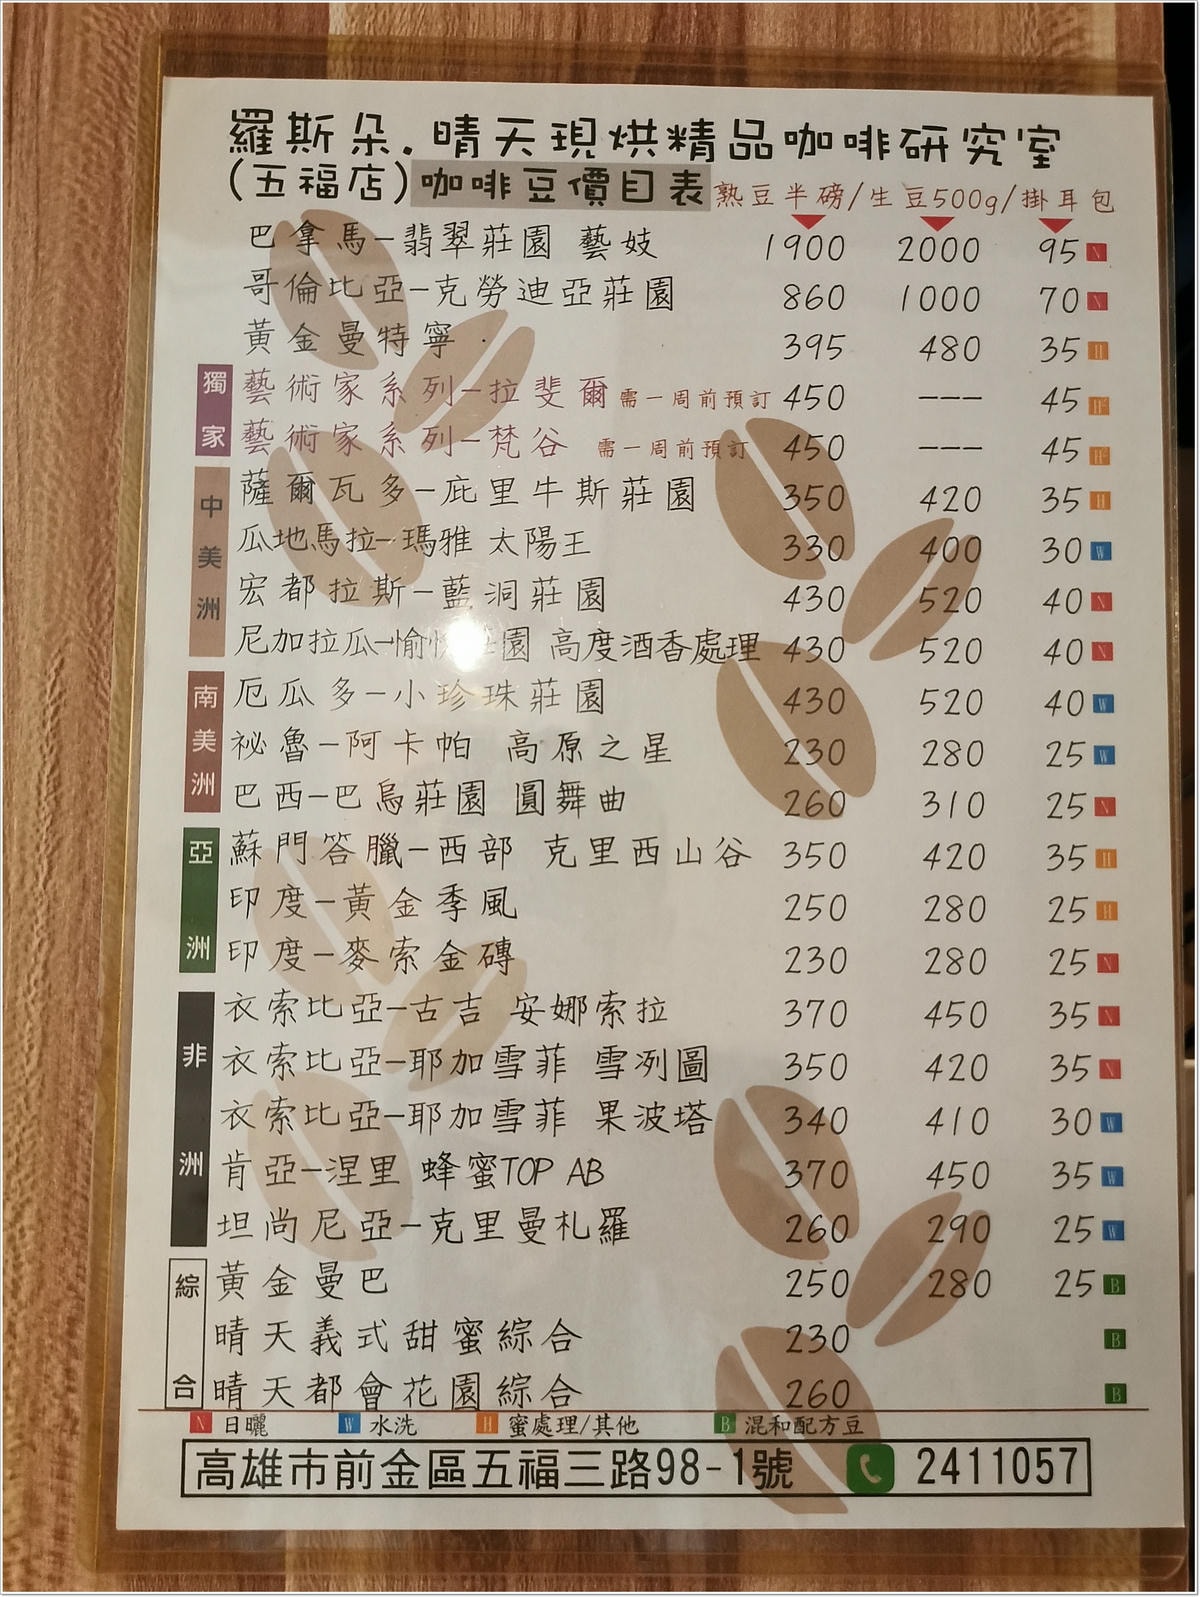 羅斯朵.晴天現烘精品咖啡研究室
(五福店)咖啡豆價目表 熟豆半磅/生豆500g/掛耳包
巴拿馬-翡翠莊園 藝妓 1900 2000 95 N
哥倫比亞-克勞迪亞莊園 860 1000 70 N
黃金曼特寧 395 480 35 H
獨家 藝術家系列-拉斐爾 需一周前預訂 450 --- 45 H
藝術家系列-梵谷 需一周前預訂 450 --- 45 H
中美洲 薩爾瓦多-庇里牛斯莊園 350 420 35 H
瓜地馬拉-瑪雅 太陽王 330 400 30 W
宏都拉斯-藍洞莊園 430 520 40 N
尼加拉瓜-愉悅莊園 高度酒香處理 430 520 40 N
南美洲 厄瓜多-小珍珠莊園 430 520 40 W
祕魯-阿卡帕 高原之星 230 280 25 W
巴西-巴烏莊園 圓舞曲 260 310 25 N
亞洲 蘇門答臘-西部 克里西山谷 350 420 35 H
印度-黃金季風 250 280 25 H
印度-麥索金磚 230 280 25 N
非洲 衣索比亞-古吉 安娜索拉 370 450 35 N
衣索比亞-耶加雪菲 雪冽圖 350 420 35 N
衣索比亞-耶加雪菲 果波塔 340 410 30 W
肯亞-涅里 蜂蜜TOP AB 370 450 35 W
坦尚尼亞-克里曼札羅 260 290 25 W
綜合 黃金曼巴 250 280 25 B
晴天義式甜蜜綜合 230 B
晴天都會花園綜合 260 B
N 日曬 W 水洗 H 蜜處理/其他 B 混和配方豆
高雄市前金區五福三路98-1號 2411057